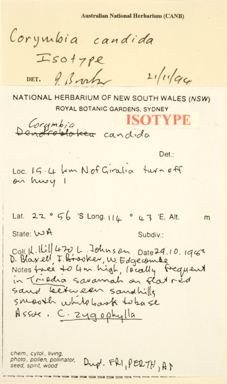 Australian National Herbarium (CANB)
Corymbia candida
Isotype
DET. 21/11/94
NATIONAL HERBARIUM OF NEW SOUTH WALES (NSW)
ROYAL BOTANIC GARDENS, SYDNEY
ISOTYPE
Corymbia
candida
Det.:
Loc. 19.4 km N of Giralia turnoff
on hwy 1
Lat. 22° 56 'S Long. 114 ° 43 'E. Alt. m
State: WA Subdiv.:
Coll. K. Hill 470 L. Johnson Date 29.10.198
D. Blaxell, I. Brooker, W. Edgecombe
Notes tree to 4m high, locally frequent
in Triodia savannah on flat red
sand between sandhills
smooth white bark to base
Assoc. C. zygophylla
chem., cytol., living,
photo., pollen, pollinator,
seed, spirit, wood
Dupl. FRI, PERTH, AD